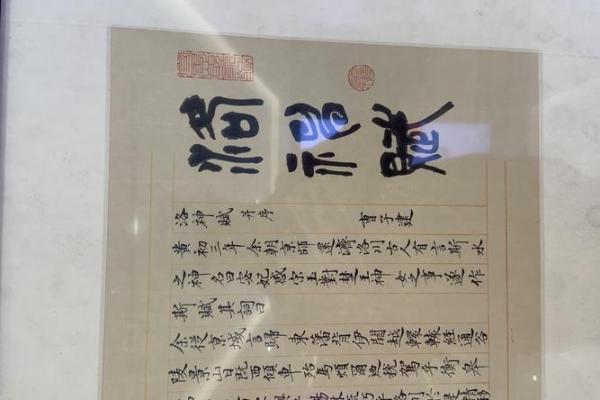 洛神賦
洛神賦 并序 曹子建
黃初三年余朝京師還濟洛川古人有言斯水
之神名曰宓妃感宋玉對楚王神女之事遂作
斯賦其詞曰
余從京城言歸東藩背伊闕越轘轅經通谷
陵景山日既西傾車殆馬煩爾迺稅駕乎蘅皋